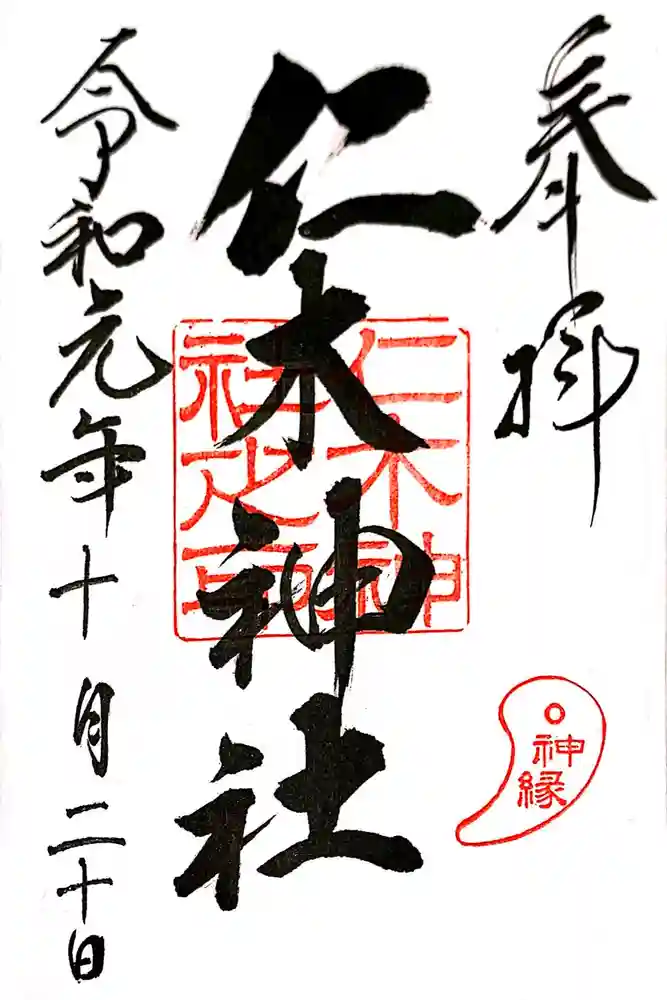 奉拝
仁木神社
仁木神
社之印
神縁
令和元年十月二十日